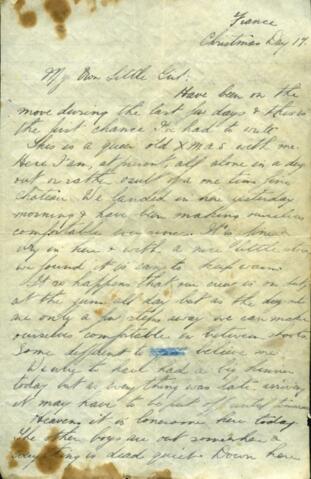 France
Christmas Day 17.
My Own Little Girl:
Have been on the
move during the last few days & this is
the first chance I've had to write
This is a queer old Xmas with me.
Here I am, at present all alone in a dug
out or rather vault of a one time fine
Chateau. We landed in here yesterday
morning & have been making ourselves
comfortable ever since. It is
dry in here & with a nice little stove
we found it is easy to keep warm.
It so happens that our crew is on duty
at the guns all day but as the dugouts
are only a few steps away we can make
ourselves comfortable in between shoots.
Some different to believe me.
We were to have had a big dinner
today but as everything was late arriving
it may have to be put off until tomorrow
Heavens it is lonesome here today
The other boys are out somewhere &
everything is dead quiet. Down here